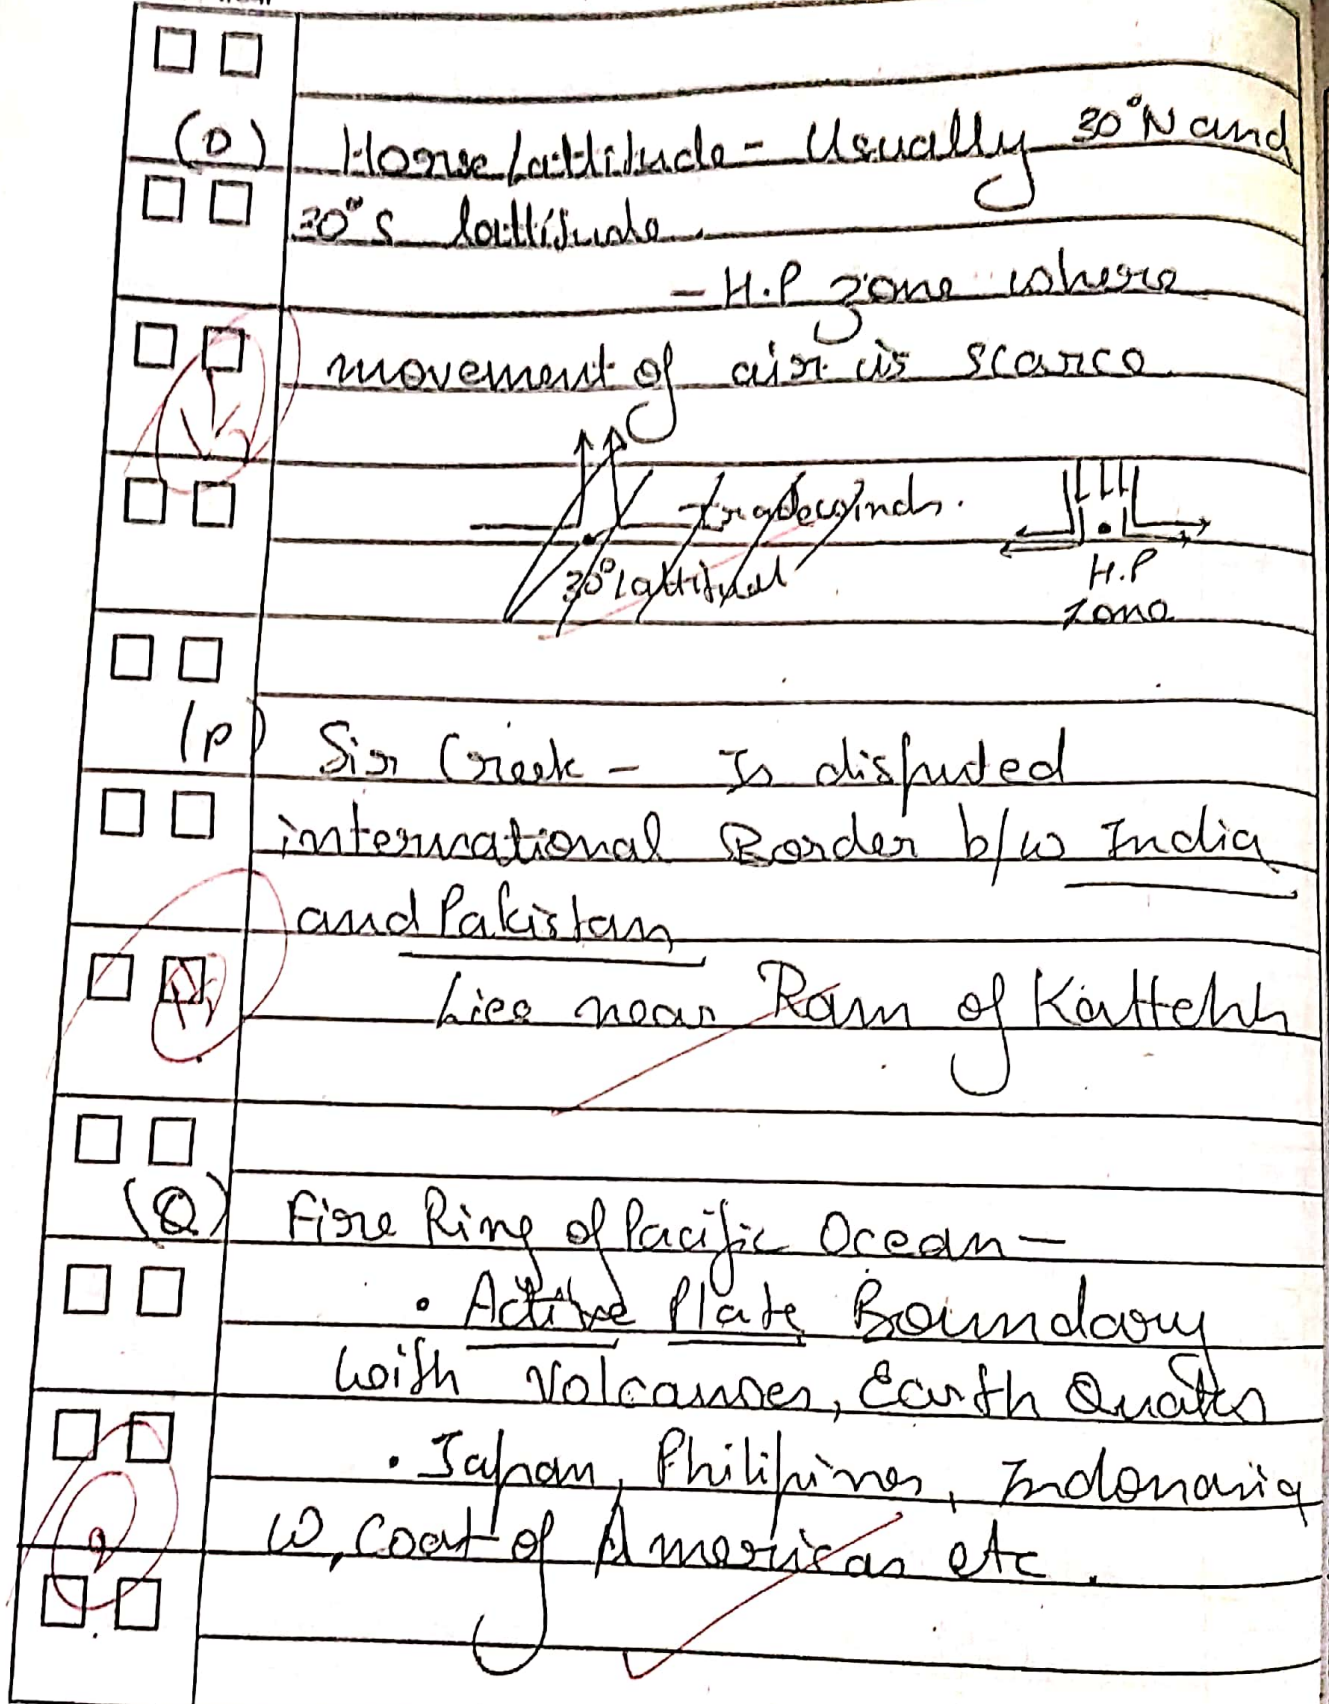 (O) Horse Lattitude - Usually 30°N and
30°S lattitude.
- H.P zone where
movement of air is scarce
tradewinds.
30° lattitud
H.P
zone
(P) Sir Creek - Is disputed
international Border b/w India
and Pakistan
Lies near Rann of Kattchh
(Q) Fire Ring of Pacific Ocean -
• Active Plate Boundary
with Volcanoes, Earth Quakes
• Japan, Philipines, Indonasia
W. Coat of Americas etc.